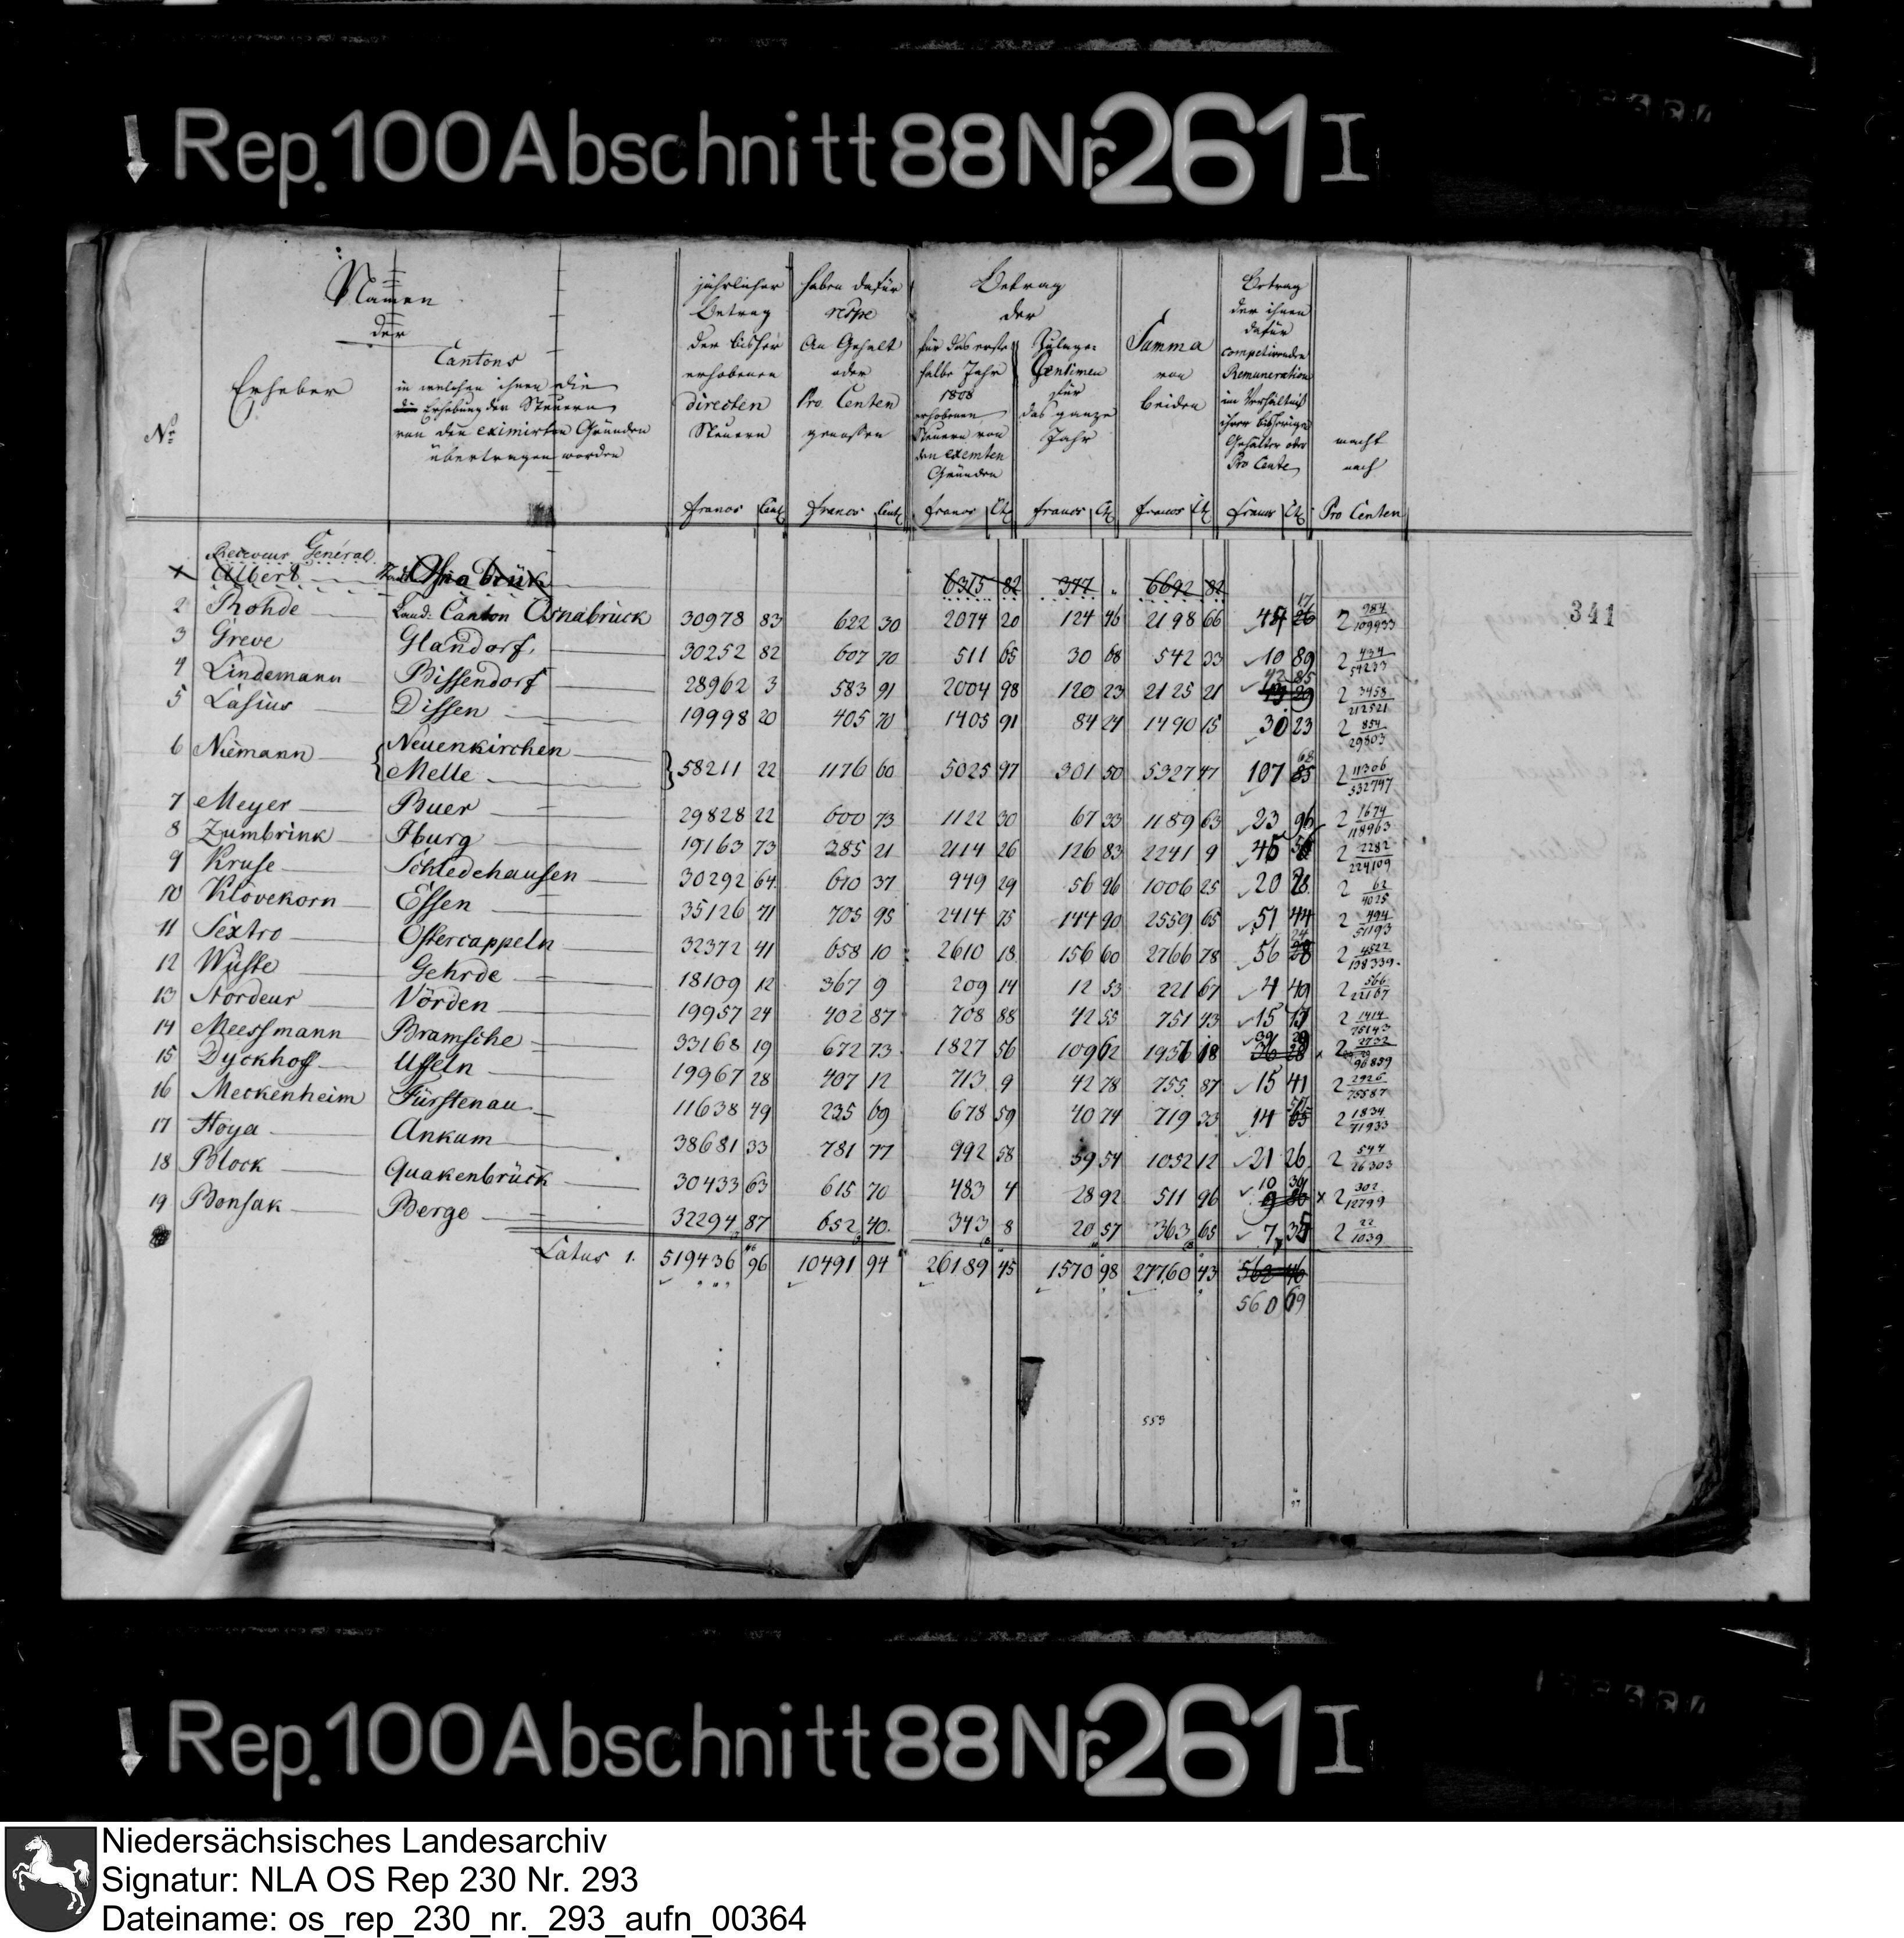 Rep. 100 Abschnitt 88 Nr. 261 I
Namen
der
Erheber
Cantons
in welchen ihnen die
die Erhebung der Steuern
von den eximirten Gründen
übertragen worden
jährlicher
Betrag
der bisher
erhobenen
directen
Steuern
haben dafür
resp
An Gehalt
oder
Pro Centen
genossen
Betrag
der
für das erste
halbe Jahr
1808
erhobenen
Steuern von
den exemten
Gründen
Zulage
Centimen
für
das ganze
Jahr
Summa
von
beiden
Betrag
der ihnen
dafür
competirenden
Remuneration
im Verhältniß
ihrer bisherigen
Gehälter oder
Pro Cente
macht
nach
Pro Centen
No
francs Cent francs Cent francs Ct francs Ct francs Ct francs Ct Pro Centen
Receveur Général
Albert Stadt Osnabrück 6315 82 377 " 6692 82
2 Rohde Land: Canton Osnabrück 30978 83 622 30 2074 20 124 46 2198 66 17 26 2 984/109933
341
3 Greve Glandorf 30252 82 607 70 511 65 30 68 542 33 10 89 2 434/54233
4 Lindemann Bissendorf 28962 3 583 91 2004 98 120 23 2125 21 42 85 2 3458/212521
5 Lasius Dissen 19998 20 405 70 1405 91 84 24 1490 15 30 23 2 854/29803
6 Niemann { Neuenkirchen
Melle } 58211 22 1176 60 5025 97 301 50 5327 47 107 68 85 2 11306/532747
7 Meyer Buer 29828 22 600 73 1122 30 67 33 1189 63 23 96 2 1674/118963
8 Zumbrink Iburg 19163 73 385 21 2114 26 126 83 2241 9 45 2 2282/224109
9 Kruse Schledehausen 30292 64 610 37 949 29 56 96 1006 25 20 28 2 62/4025
10 Klövekorn Essen 35126 71 705 95 2414 75 144 90 2559 65 51 44 2 494/51193
11 Sextro Ostercappeln 32372 41 658 10 2610 18 156 60 2766 78 56 24 28 2 4522/138339
12 Wüste Gehrde 18109 12 367 9 209 14 12 53 221 67 4 49 2 566/22167
13 Nordeur Vörden 19957 24 402 87 708 88 42 55 751 43 15 2 1414/75143
14 Meessmann Bramsche 33168 19 672 73 1827 56 109 62 1936 18 39 29 36 28 2 2732/96859
15 Dyckhoff Uffeln 19967 28 407 12 713 9 42 78 755 87 15 41 2 2926/75587
16 Meckenheim Fürstenau 11638 49 235 69 678 59 40 74 719 33 14 57 65 2 1834/71933
17 Hoya Ankum 38681 33 781 77 992 58 59 54 1052 12 21 26 2 544/26303
18 Block Quakenbrück 30433 63 615 70 483 4 28 92 511 96 10 39 9 86 2 302/12799
19 Bonsak Berge 32294 87 652 40 343 8 20 57 363 65 7 35 2 22/1039
Latus 1. 519436 96 10491 94 26189 45 1570 98 27760 43 562 46
560 69
559
Rep. 100 Abschnitt 88 Nr. 261 I
Niedersächsisches Landesarchiv
Signatur: NLA OS Rep 230 Nr. 293
Dateiname: os_rep_230_nr._293_aufn_00364